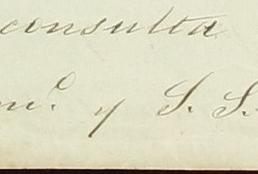 consulta
mº. y S. S.